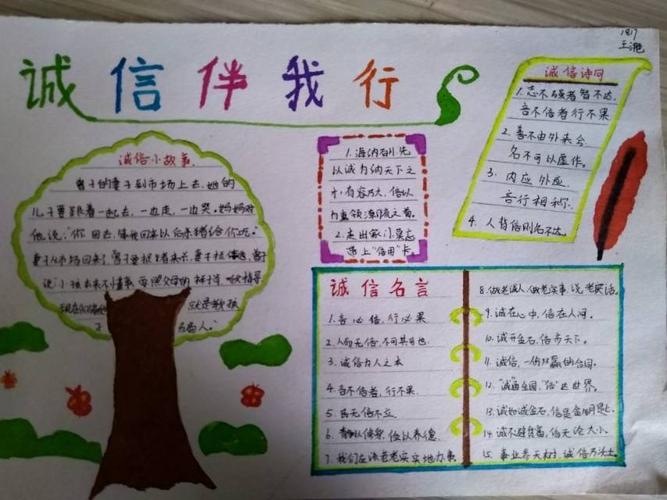 1817
王滟
诚信伴我行
诚信小故事
曾子的妻子到市场上去,她的
儿子要跟着一起去,一边走,一边哭。妈妈对
他说:"你回去,等我回来以后杀猪给你吃。"
妻子从市场回来了,曾子要捉猪来杀,妻子拦
说:小孩
父母的样子
就是教孩
子
1.海纳百川先
以诚为纳天下之
才,有容乃大,信以
2.走出家门莫忘
带上"信用"卡
诚信诗词
1.志不强者智不达,
言不信者行不果
2.善不由外来兮
名不可以虚作。
3.内应外应,
言行相称。
4.人背信则名不达
诚信名言
1.言必信,行必果
2.人而无信,不可其可也
3.诚信为人之本
4.言不信者,行不果
5.民无信不立
6.以养德
7.我们应该老老实实地办事
8.做老诚人,做老实事,说老实话。
9.诚在心中,信在人间。
10.诚开金石,信步天下。
11.诚信,一份双赢的合同。
12."诚"画全国,"信"达世界。
13.诚如诚金石,信是金明果
14.诚不避贫富,信无论大小。
15.事业参天树,诚信乃沃土